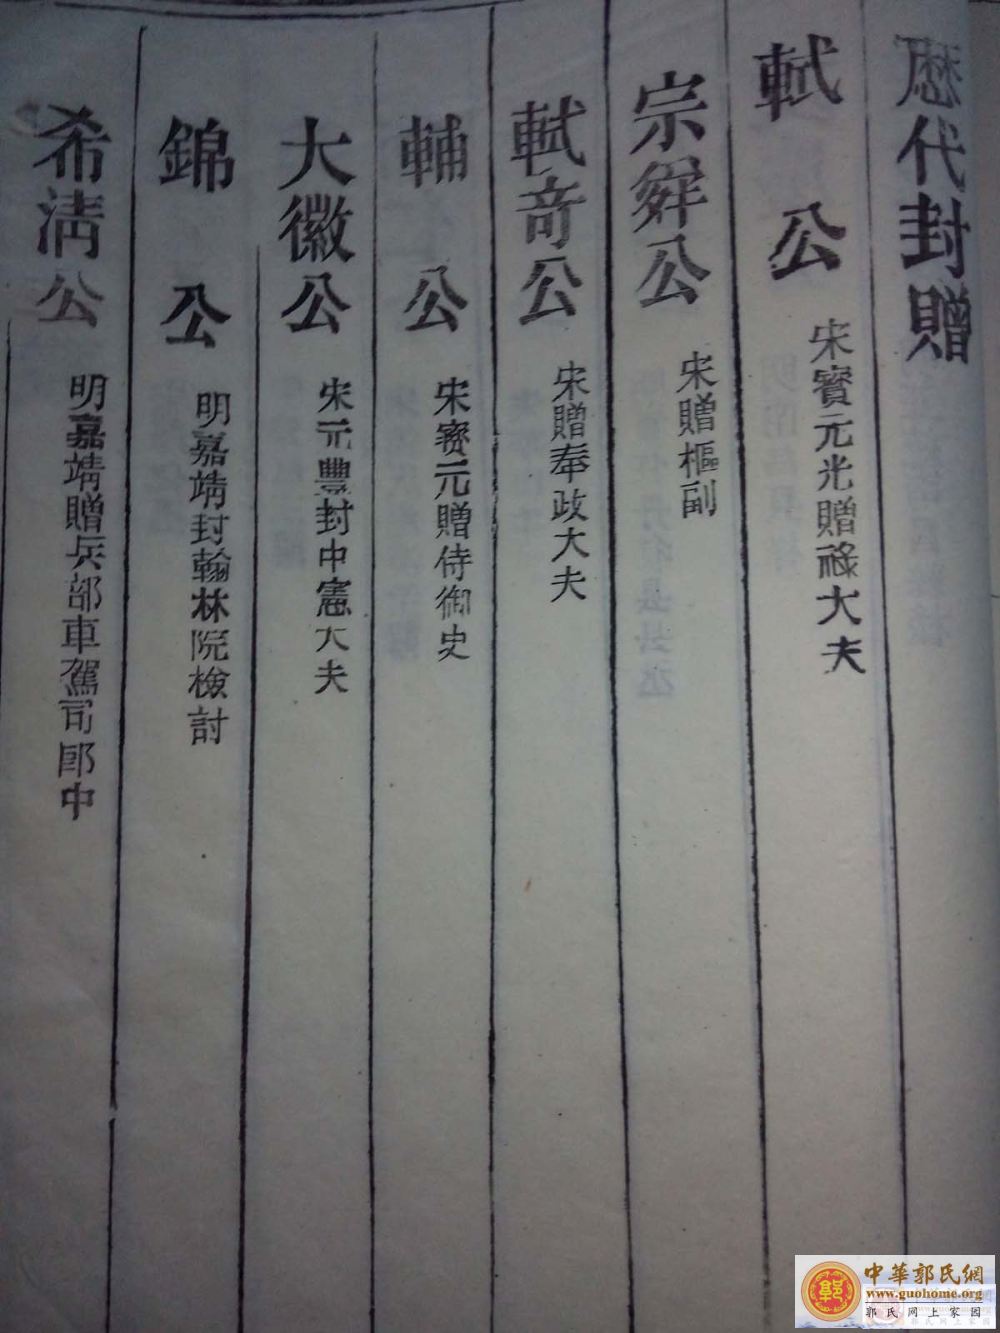 歷代封贈
軾公 宋寳元光贈祿大夫
宗舜公 宋贈樞副
軾奇公 宋贈奉政大夫
輔公 宋寳元贈侍御史
大徽公 宋元豐封中憲大夫
錦公 明嘉靖封翰林院檢討
希淸公 明嘉靖贈兵部車駕司郎中
中華郭氏網
www.guohome.org
郭氏网上家园